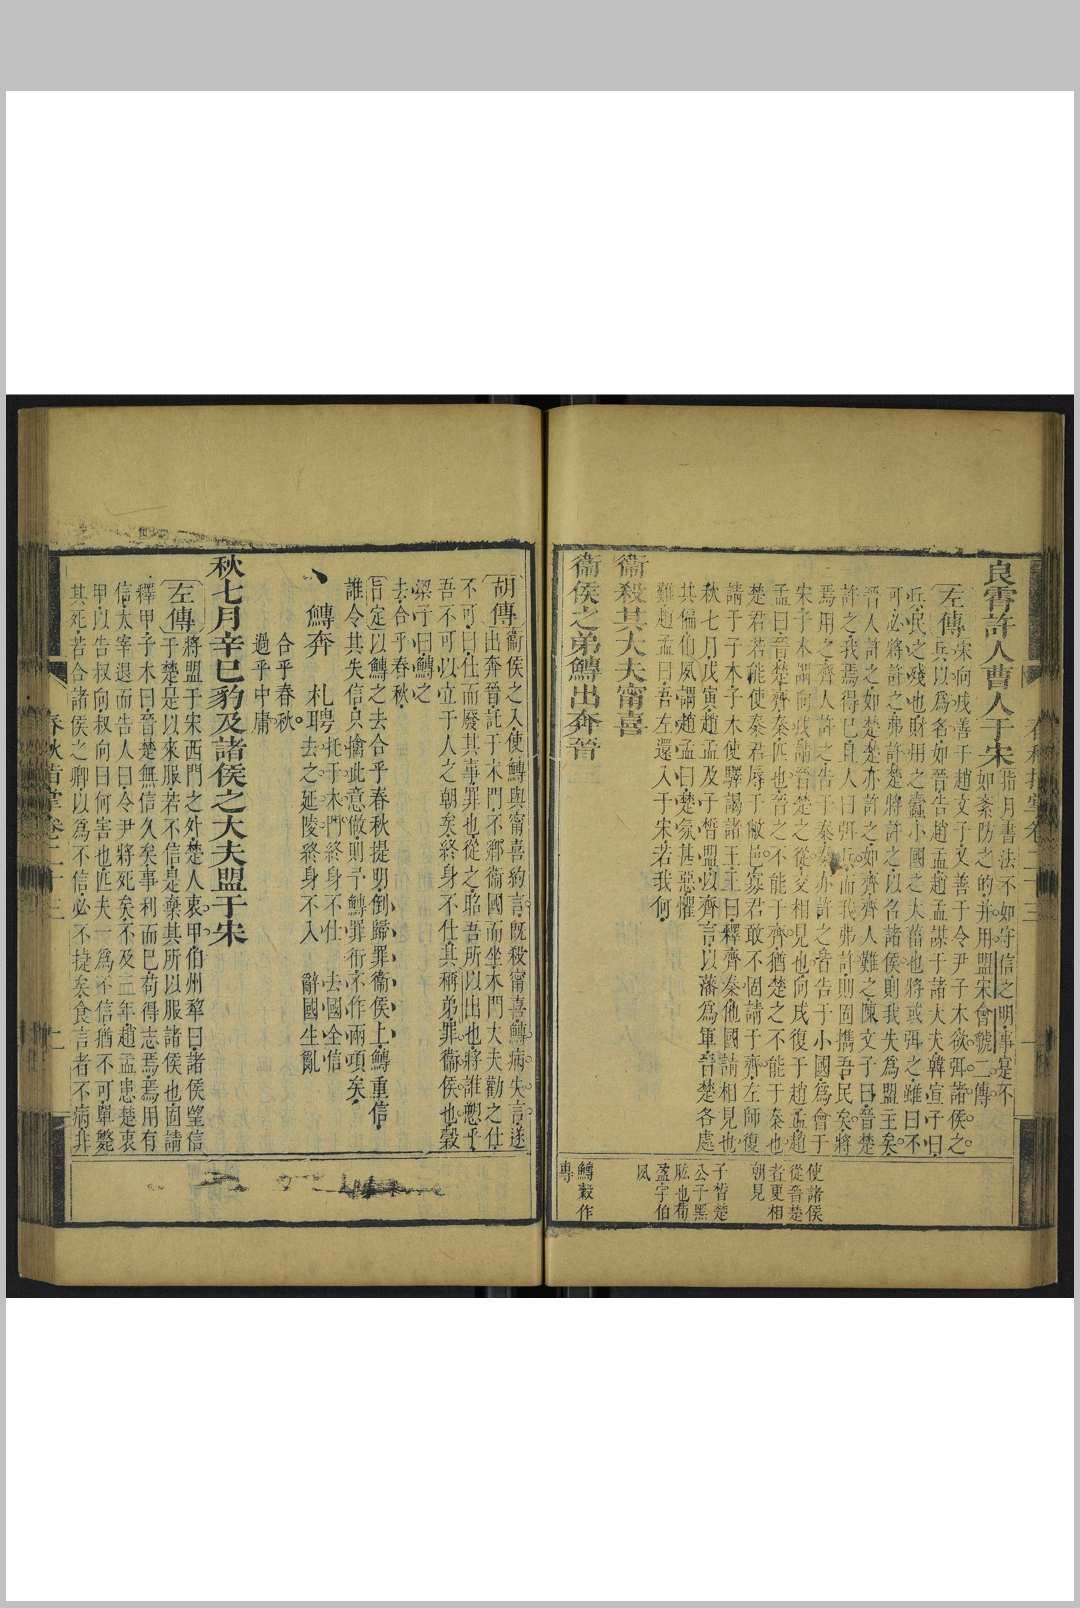 良霄許人曹人于宋
指月書法不如守信之明事寔不
如紊防之的并用盟宋會虢二傳
左傳
宋向戌善于趙文子又善于令尹子木欲弭諸侯之
兵以爲名如晉告趙孟趙孟謀于諸大夫韓宣子曰
兵民之殘也財用之蠹小國之大菑也將或弭之雖曰不
可必將許之弗許楚將許之以召諸侯則我失爲盟主矣
晉人許之如楚楚亦許之如齊齊人難之陳文子曰晉楚
許之我焉得已且人曰弭兵而我弗許則固攜吾民矣將
焉用之齊人許之告于秦秦亦許之皆告于小國爲會于
宋子木謂向戌請晉楚之從交相見也向戌復于趙孟趙
孟曰晉楚齊秦匹也晉之不能于齊猶楚之不能于秦也
楚君若能使秦君辱于敝邑寡君敢不固請于齊左師復
請于子木子木使驛謁諸王王曰釋齊秦他國請相見也
秋七月戊寅趙孟及子晳盟以齊言以藩爲軍晉楚各處
其偏伯夙謂趙孟曰楚氛甚惡懼
難趙孟曰吾左還入于宋若我何
衞殺其大夫甯喜
衞侯之弟鱄出奔晉
使諸侯
從晉楚
者更相
朝見
子晳楚
公子黑
肱也荀
盈字伯
夙
鱄穀作
專
春秋指掌卷二十三
胡傳
衞侯之入使鱄與甯喜約言既殺甯喜鱄病失言遂
出奔晉託于木門不鄉衞國而坐木門大夫勸之仕
不可曰仕而廢其事罪也從之昭吾所以出也將誰愬乎
吾不可以立于人之朝矣終身不仕其稱弟罪衞侯也穀
梁子曰鱄之
去合乎春秋
旨定以鱄之去合乎春秋提明倒歸罪衞侯上鱄重信
誰令其失信只擒此意做則予鱄罪衎不作兩項矣
鱄奔 托于木門終身不仕 去國全信
札聘 去之延陵終身不入 辭國生亂
合乎春秋
過乎中庸
秋七月辛巳豹及諸侯之大夫盟于宋
左傳
將盟于宋西門之外楚人衷甲伯州犂曰諸侯望信
于楚是以來服若不信是棄其所以服諸侯也固請
釋甲子木曰晉楚無信久矣事利而已苟得志焉焉用有
信太宰退而告人曰令尹將死矣不及三年趙孟患楚衷
甲以告叔向叔向曰何害也匹夫一爲不信猶不可單斃
其死若合諸侯之卿以爲不信必不捷矣食言者不病非
春秋指掌卷二十三